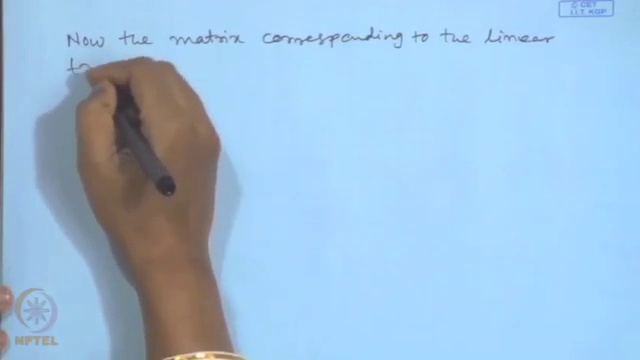 © CET
I.I.T. KGP
Now the matrix corresponding to the linear
NPTEL